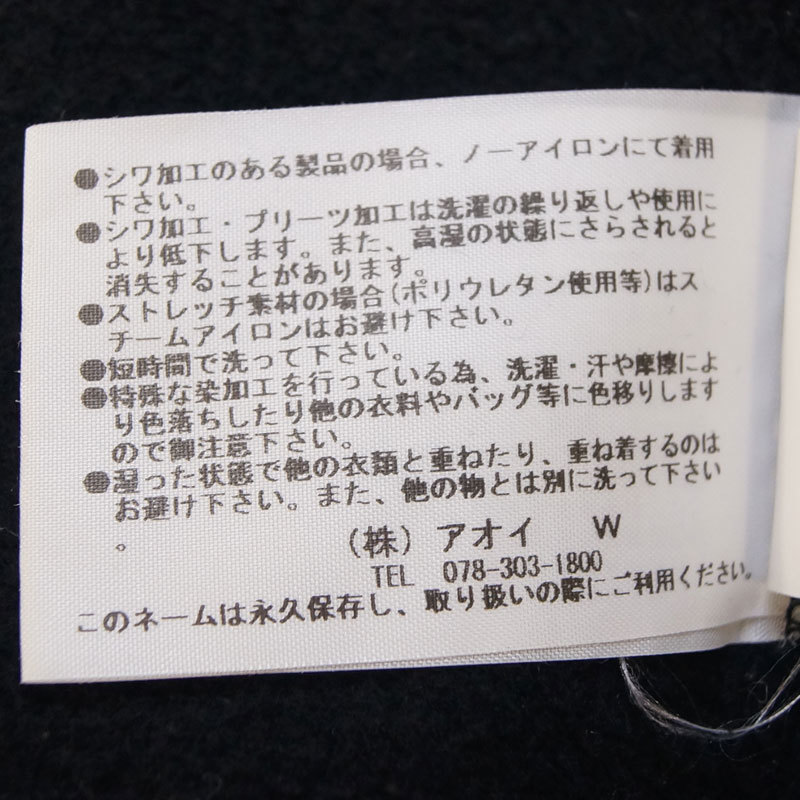 ●シワ加工のある製品の場合、ノーアイロンにて着用
下さい。
●シワ加工・プリーツ加工は洗濯の繰り返しや使用に
より低下します。また、高湿の状態にさらされると
消失することがあります。
●ストレッチ素材の場合(ポリウレタン使用等)はス
チームアイロンはお避け下さい。
●短時間で洗って下さい。
●特殊な染加工を行っている為、洗濯・汗や摩擦によ
り色落ちしたり他の衣料やバッグ等に色移りします
ので御注意下さい。
●湿った状態で他の衣類と重ねたり、重ね着するのは
お避け下さい。また、他の物とは別に洗って下さい
。
(株) アオイ W
TEL 078-303-1800
このネームは永久保存し、取り扱いの際にご利用ください。